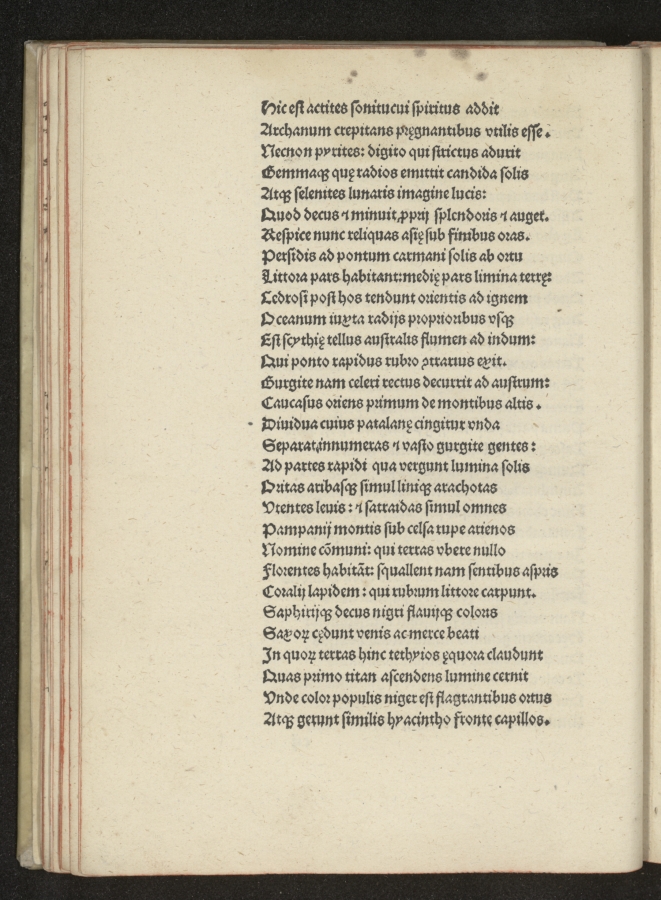 Hic est actites sonitucui spiritus addit
Archanum crepitans pręgnantibus vtilis esse.
Necnon pyrites: digito qui strictus adurit
Gemmaqꝫ quę radios emittit candida solis
Atqꝫ selenites lunaris imagine lucis:
Quod decus ⁊ minuit ꝓprij splendoris ⁊ auget.
Respice nunc reliquas asię sub finibus oras.
Persidis ad pontum carmani solis ab ortu
Littora pars habitant: medię pars limina terrę:
Cedrosi post hos tendunt orientis ad ignem
Oceanum iuxta radijs proprioribus vsqꝫ
Est scythię tellus australis flumen ad indum:
Qui ponto rapidus rubro ꝯtrarius exit.
Gurgite nam celeri rectus decurrit ad austrum:
Caucasus oriens primum de montibus altis.
Diuidua cuius patalanę cingitur vnda
Separat, innumeras ⁊ vasto gurgite gentes:
Ad partes rapidi qua vergunt lumina solis
Oritas aribasqꝫ simul liniqꝫ arachotas
Vtentes leuis: ⁊ satraidas simul omnes
Pampanij montis sub celsa rupe arienos
Nomine cõmuni: qui terras vbere nullo
Florentes habitãt: squallent nam sentibus aspris
Coralij lapidem: qui rubrum littore carpunt.
Saphirijqꝫ decus nigri flauijqꝫ coloris
Saxoꝝ cędunt venis ac merce beati
In quoꝝ terras hinc tethyios ęquora claudunt
Quas primo titan ascendens lumine cernit
Vnde color populis niger est flagrantibus ortus
Atqꝫ gerunt similis hyacintho fronte capillos.